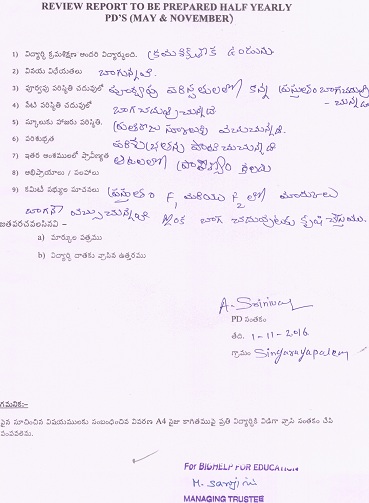 REVIEW REPORT TO BE PREPARED HALF YEARLY
PD'S (MAY & NOVEMBER)
1) విద్యార్థి క్రమశిక్షణ అందరి విద్యార్థులది. క్రమశిక్షణ ఉండును
2) వినయ విధేయతలు బాగున్నవి.
3) పూర్వపు పరిస్థితి చదువులో పూర్వపు పరిస్థితులలో కన్న ప్రస్తుతం బాగచదువు
4) నేటి పరిస్థితి చదువులో బాగ చదువుచున్నది
5) స్కూలుకు హాజరు పరిస్థితి. ప్రతిరోజు స్కూలుకు వచ్చుచున్నది.
6) పరిశుభ్రత పరిశుభ్రతను పాటించుచున్నది
7) ఇతర అంశములలో ప్రావీణ్యత ఆటలలో ప్రావీణ్యం కలదు
8) అభిప్రాయాలు / సలహాలు
9) కమిటీ సభ్యుల సూచనలు ప్రస్తుతం F1 మరియు F2 లో మార్కులు
బాగనే వచ్చుచున్నవి ఇంక బాగ చదువుటకు కృషి చేస్తాము.
జతపరచవలసినవి -
a) మార్కుల పత్రము
b) విద్యార్థి దాతకు వ్రాసిన ఉత్తరము
A. Srinivas
PD సంతకం
తేది. 1-11-2016
గ్రామం Singarayapalem
గమనిక:-
పైన సూచించిన విషయములకు సంబంధించిన వివరణ A4 సైజు కాగితముపై ప్రతి విద్యార్థికి విడిగా వ్రాసి సంతకం చేసి
పంపవలెను.
For BIGHELP FOR EDUCATION
M. Sarojini
MANAGING TRUSTEE